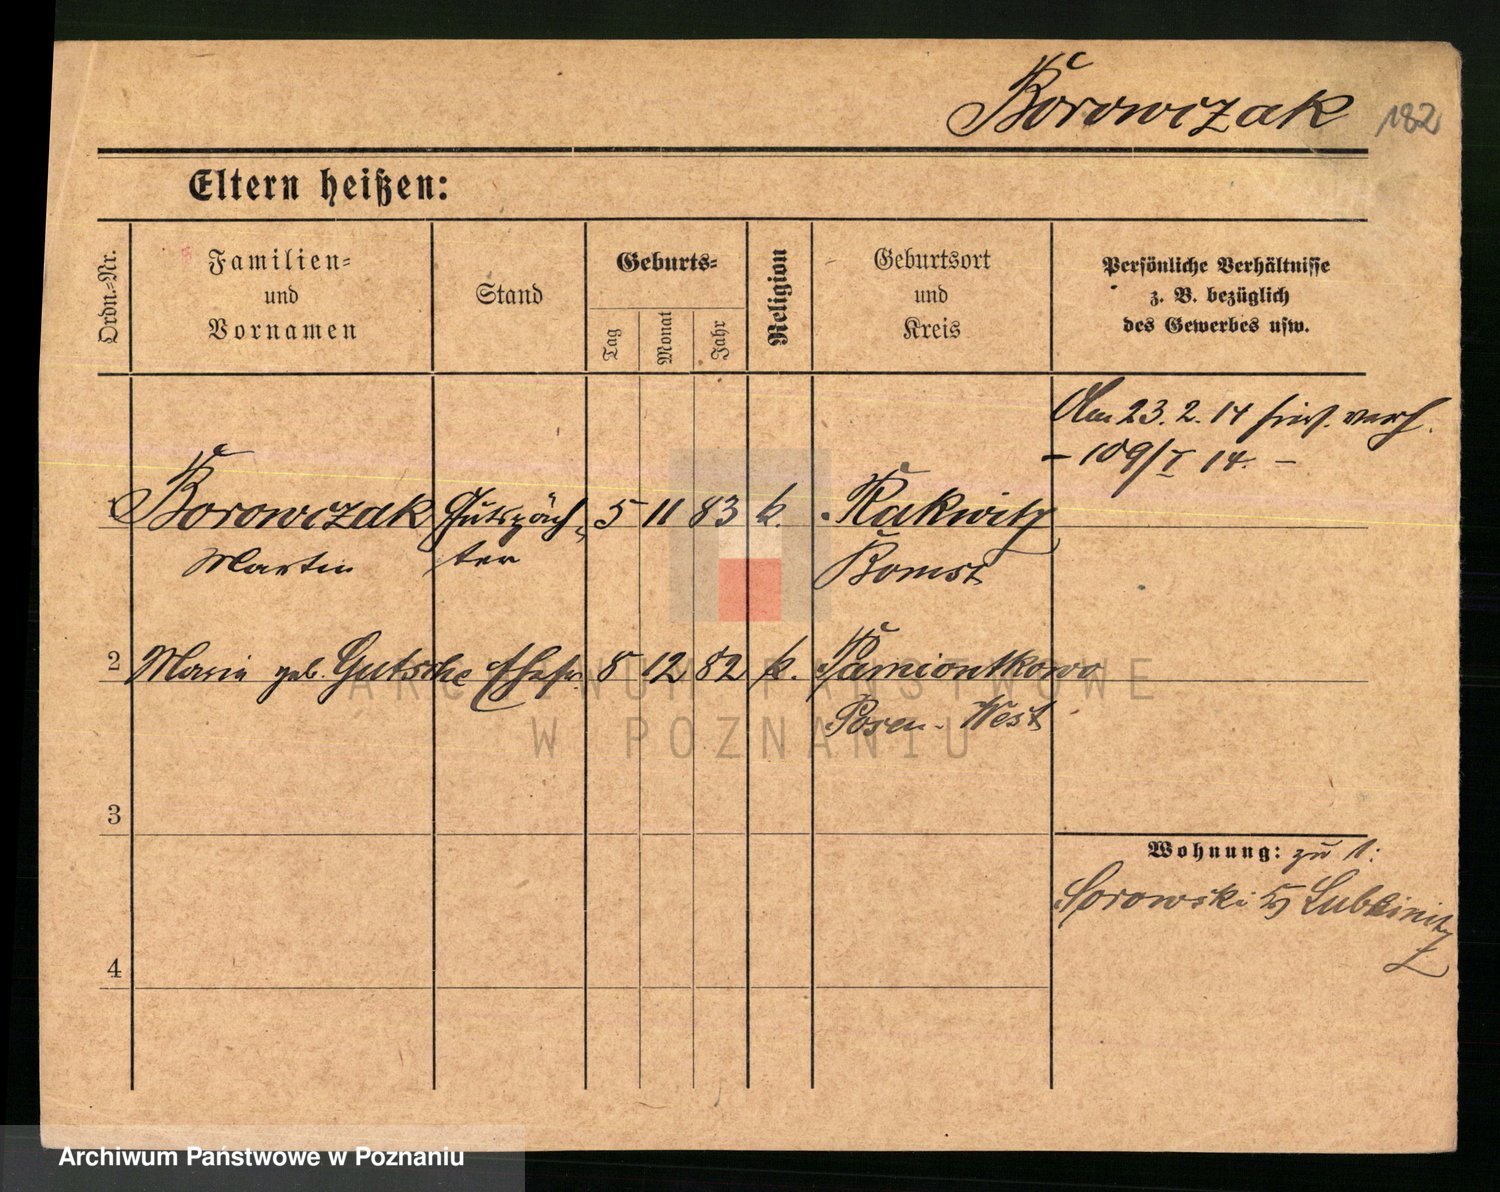 Borowczak 182
Eltern heißen:
Ordn.-Nr.
Familien-
und
Vornamen
Stand
Geburts-
Tag
Monat
Jahr
Religion
Geburtsort
und
Kreis
Persönliche Verhältnisse
z. B. bezüglich
des Gewerbes usw.
Am 23. 2. 14 hies. verh.
- 109/I 14. -
1 Borowczak Gutspäch- 5 11 83 k. Rakwitz
Martin ter Bomst
2 Maria geb. Gutsche Ehefr. 8 12 82 k. Kamionkowo
Posen-West
3
Wohnung: zu 1:
4
ARCHIWUM PAŃSTWOWE
W POZNANIU
Archiwum Państwowe w Poznaniu